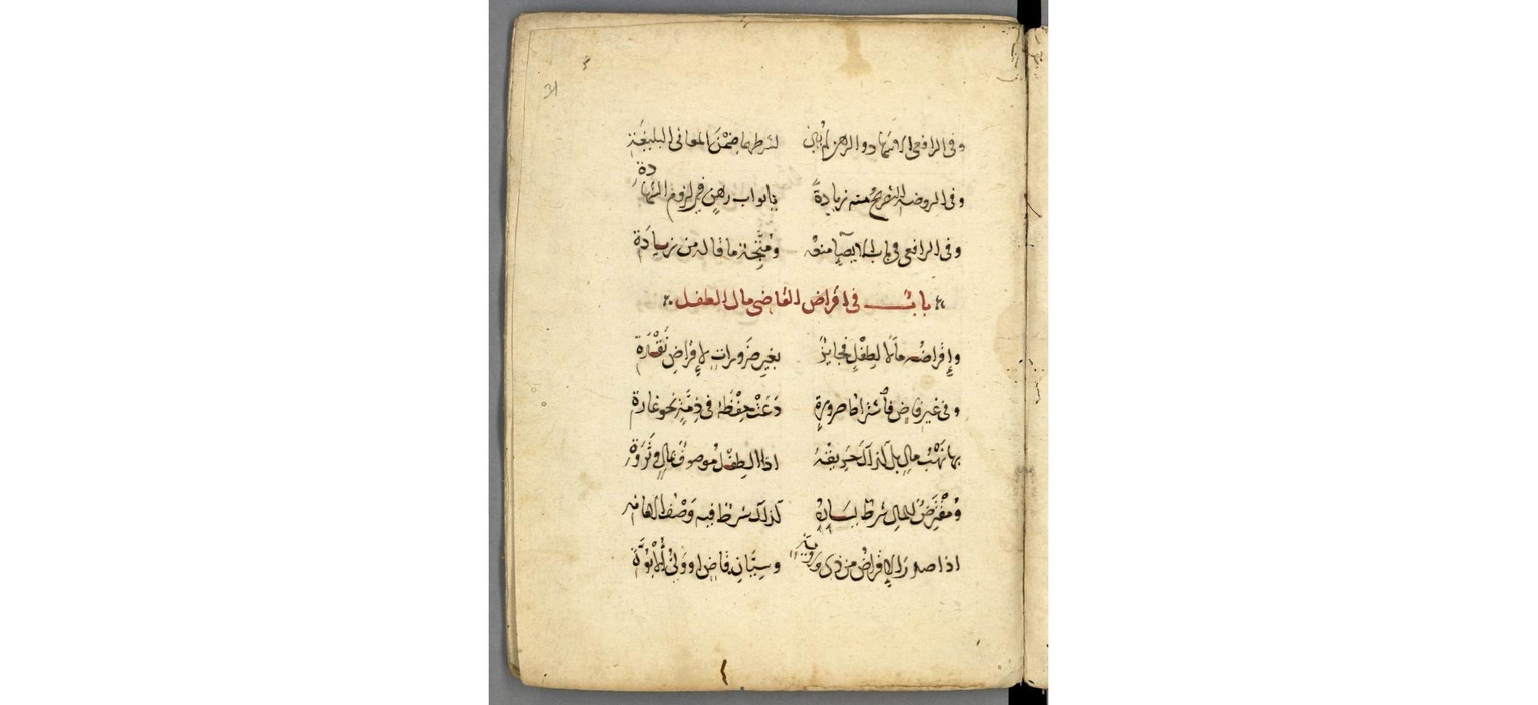 وفى الرافعى لم يبن لشرطهما ضمن المعانى البليغة
وفى الروضة التصريح منه زيادةً بابواب رهن فى لزوم الشهادة
وفى الرافعى فى باب الايصا منعه ومتجه ما قاله من زيادة
باب فى اقراض القاضى مال الطفل
وإقراضه مالا لطفل فجايز بغير ضرورات لإقراض نقدة
وفى غير قاض فاشتراط ضرورة دعت حفظه فى ذمة نحو غارة
بها نهب مال بل كذاك حريقه اذا الطفل موصوف بمال وثروة
ومقترض للمال شرط يساره كذاك شرط فيه وصف الامانة
اذا صدر الإقراض من ذى وسيان قاض او ولى الأبوة